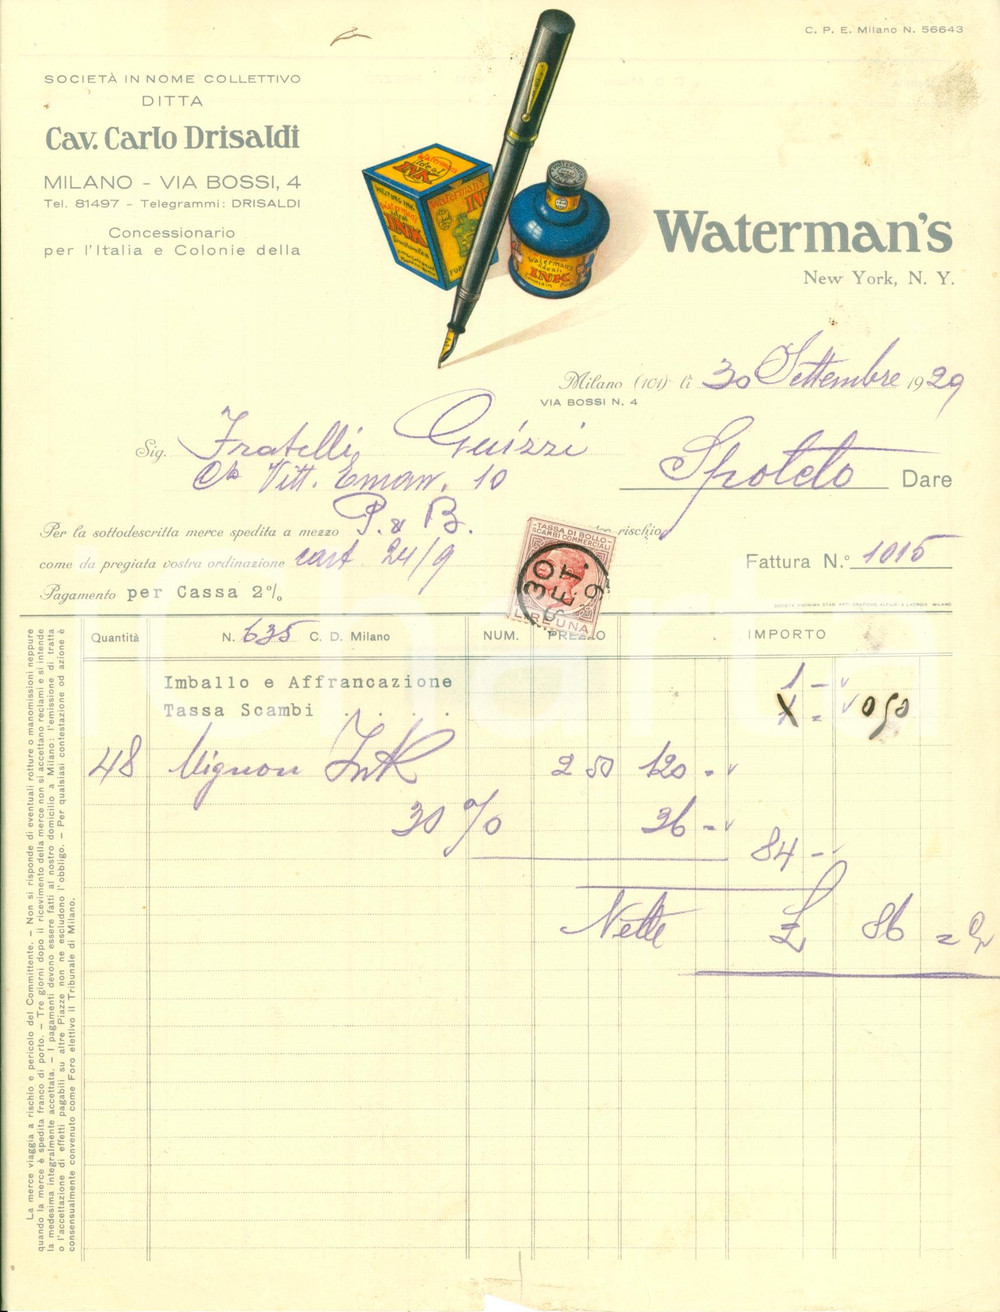 C. P. E. Milano N. 56643
SOCIETÀ IN NOME COLLETTIVO
DITTA
Cav. Carlo Drisaldi
MILANO - VIA BOSSI, 4
Tel. 81497 - Telegrammi: DRISALDI
Concessionario
per l'Italia e Colonie della
Waterman's
New York, N. Y.
Waterman's
Ideal
INK
Waterman's
INK
Waterman's
Ideal
INK
Milano (101) li 30 Settembre 1929
VIA BOSSI N. 4
Sig. Fratelli Guizzi
Co Vitt. Eman. 10
Spoleto Dare
Per la sottodescritta merce spedita a mezzo P. & B. rischio
come da pregiata vostra ordinazione cart. 24/9
Fattura N.° 1015
Pagamento per Cassa 2%
TASSA DI BOLLO
SCAMBI COMMERCIALI
30 SET. 9
LIRE UNA
SOCIETÀ ANONIMA STAB. ARTI GRAFICHE ALFIERI & LACROIX MILANO
Quantità N. 635 C. D. Milano NUM. PREZZO IMPORTO
Imballo e Affrancazione 1 -
Tassa Scambi . . . . 1 = 050
48 Mignon Ink 2 50 120 =
30 % 36 =
84 -
Nette £ 86 =
La merce viaggia a rischio e pericolo del Committente. — Non si risponde di eventuali rotture o manomissioni neppure
quando la merce è spedita franco di porto. — Tre giorni dopo il ricevimento della merce non si accettano reclami e si intende
la medesima integralmente accettata. — I pagamenti devono essere fatti al nostro domicilio a Milano: l'emissione di tratta
o l'accettazione di effetti pagabili su altre Piazze non ne escludono l'obbligo. — Per qualsiasi contestazione od azione è
consensualmente convenuto come Foro elettivo il Tribunale di Milano.